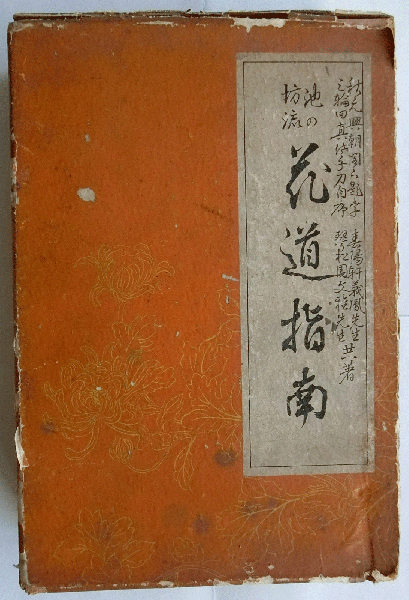 秋元興朝閣下題字 春陽軒義鳳先生
三輪田真佐子刀自序 翠松園文雅先生 共著
池の坊流
花道指南